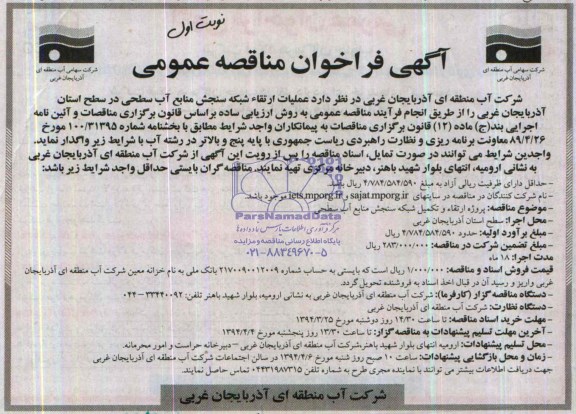 نوبت اول
آگهی فراخوان مناقصه عمومی
شرکت سهامی آب منطقه ای
آذربایجان غربی
شرکت سهامی آب منطقه ای
آذربایجان غربی
شرکت آب منطقه ای آذربایجان غربی در نظر دارد عملیات ارتقاء شبکه سنجش منابع آب سطحی در سطح استان
آذربایجان غربی را از طریق انجام فرآیند مناقصه عمومی به روش ارزیابی ساده براساس قانون برگزاری مناقصات و آئین نامه
اجرایی بند(ج) ماده (۱۲) قانون برگزاری مناقصات به پیمانکاران واجد شرایط مطابق با بخشنامه شماره ۱۰۰/۳۱۳۹۵ مورخ
۸۹/۴/۲۶ معاونت برنامه ریزی و نظارت راهبردی ریاست جمهوری با پایه پنج و بالاتر در رشته آب با شرایط زیر واگذار نماید.
واجدین شرایط می توانند در صورت تمایل، اسناد مناقصه را پس از رویت این آگهی از شرکت آب منطقه ای آذربایجان غربی
به نشانی ارومیه، انتهای بلوار شهید باهنر، دبیرخانه مرکزی تهیه نمایند. مناقصه گران بایستی حداقل واجد شرایط زیر باشند:
-حداقل دارای ظرفیت ریالی آزاد به مبلغ ۴/۷۸۴/۵۸۴/۵۹۰ ریال باشند.
- نام شرکت کنندگان در مناقصه در سایتهای sajat.mporg.ir و iets.mporg.ir موجود باشد.
- موضوع مناقصه: پروژه ارتقاء و تکمیل شبکه سنجش منابع آب سطحی
- محل اجرا: سطح استان آذربایجان غربی
- مبلغ برآورد اولیه: حدود ۴/۷۸۴/۵۸۴/۵۹۰ ریال است.
- مبلغ تضمین شرکت در مناقصه: ۲۸۳/۰۰۰/۰۰۰ ریال
مدت اجرا: ۱۸ ماه
قیمت فروش اسناد و مناقصه: ۱/۰۰۰/۰۰۰ ریال است که بایستی به حساب شماره ۲۱۷۰۰۹۰۰۱۲۰۰۹ بانک ملی به نام خزانه معین شرکت آب منطقه ای آذربایجان
غربی واریز و رسید آن در قبال اخذ اسناد به فروشنده تحویل گردد.
- دستگاه مناقصه گزار (کارفرما): شرکت آب منطقه ای آذربایجان غربی به نشانی ارومیه، بلوار شهید باهنر تلفن: ۳۳۴۴۰۰۹۲-۰۴۴
- دستگاه نظارت: شرکت آب منطقه ای آذربایجان غربی
- مهلت خرید اسناد مناقصه: تا ساعت ۱۴/۳۰ روز دوشنبه مورخ ۱۳۹۴/۳/۲۵
- آخرین مهلت تسلیم پیشنهادات به مناقصه گزار: تا ساعت ۱۳/۳۰ روز پنجشنبه مورخ ۱۳۹۴/۴/۴
- محل تسلیم پیشنهادات: ارومیه انتهای بلوار شهید باهنر،شرکت آب منطقه ای آذربایجان غربی – دبیرخانه حراست و امور محرمانه.
- زمان و محل بازگشایی پیشنهادات: ساعت ۱۰ صبح روز شنبه مورخ ۱۳۹۴/۴/۶ در سالن اجتماعات شرکت آب منطقه ای آذربایجان غربی
جهت دریافت اطلاعات بیشتر می توانند با نماینده مجری طرح به شماره تلفن ۰۴۴۳۱۹۸۷۳۱۵ تماس حاصل نمایند.
شرکت آب منطقه ای آذربایجان غربی
ParsNamadData
پایگاه اطلاع رسانی مناقصه و مزایده
۰۲۱-۸۸۳۴۹۶۷۰-۵